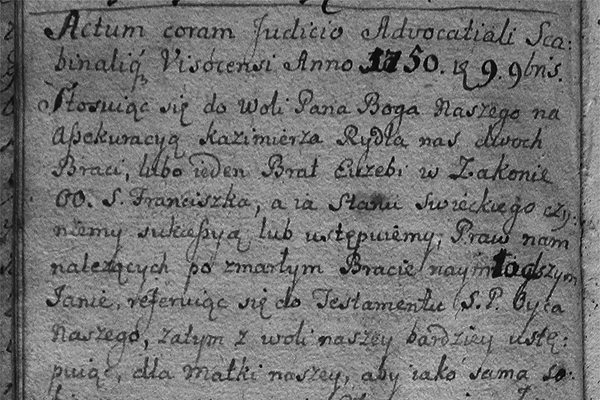 Actum coram Judicio Advocatiali Sca:
binaliq3 Visócensi Anno 1750. 9. 9bris.
Stosuiąc się do woli Pana Boga Naszego na
Aszekuracyą Kazimierza Rydla nas dwoch
Braci, lubo ieden Brat Euzebi w Zakonie
OO. S. Franciszka, a ia Stanu Swieckiego czy:
niemy sukceßyą lub ustępuiemy, Praw nam
nalezących po zmarłym Bracie naymłodszym
Janie, referuiąc się do Testamentu S. P. Oyca
Naszego, zatym z woli naszey bardziey ustę:
puiąc, dla Matki naszey, aby iako sama so: